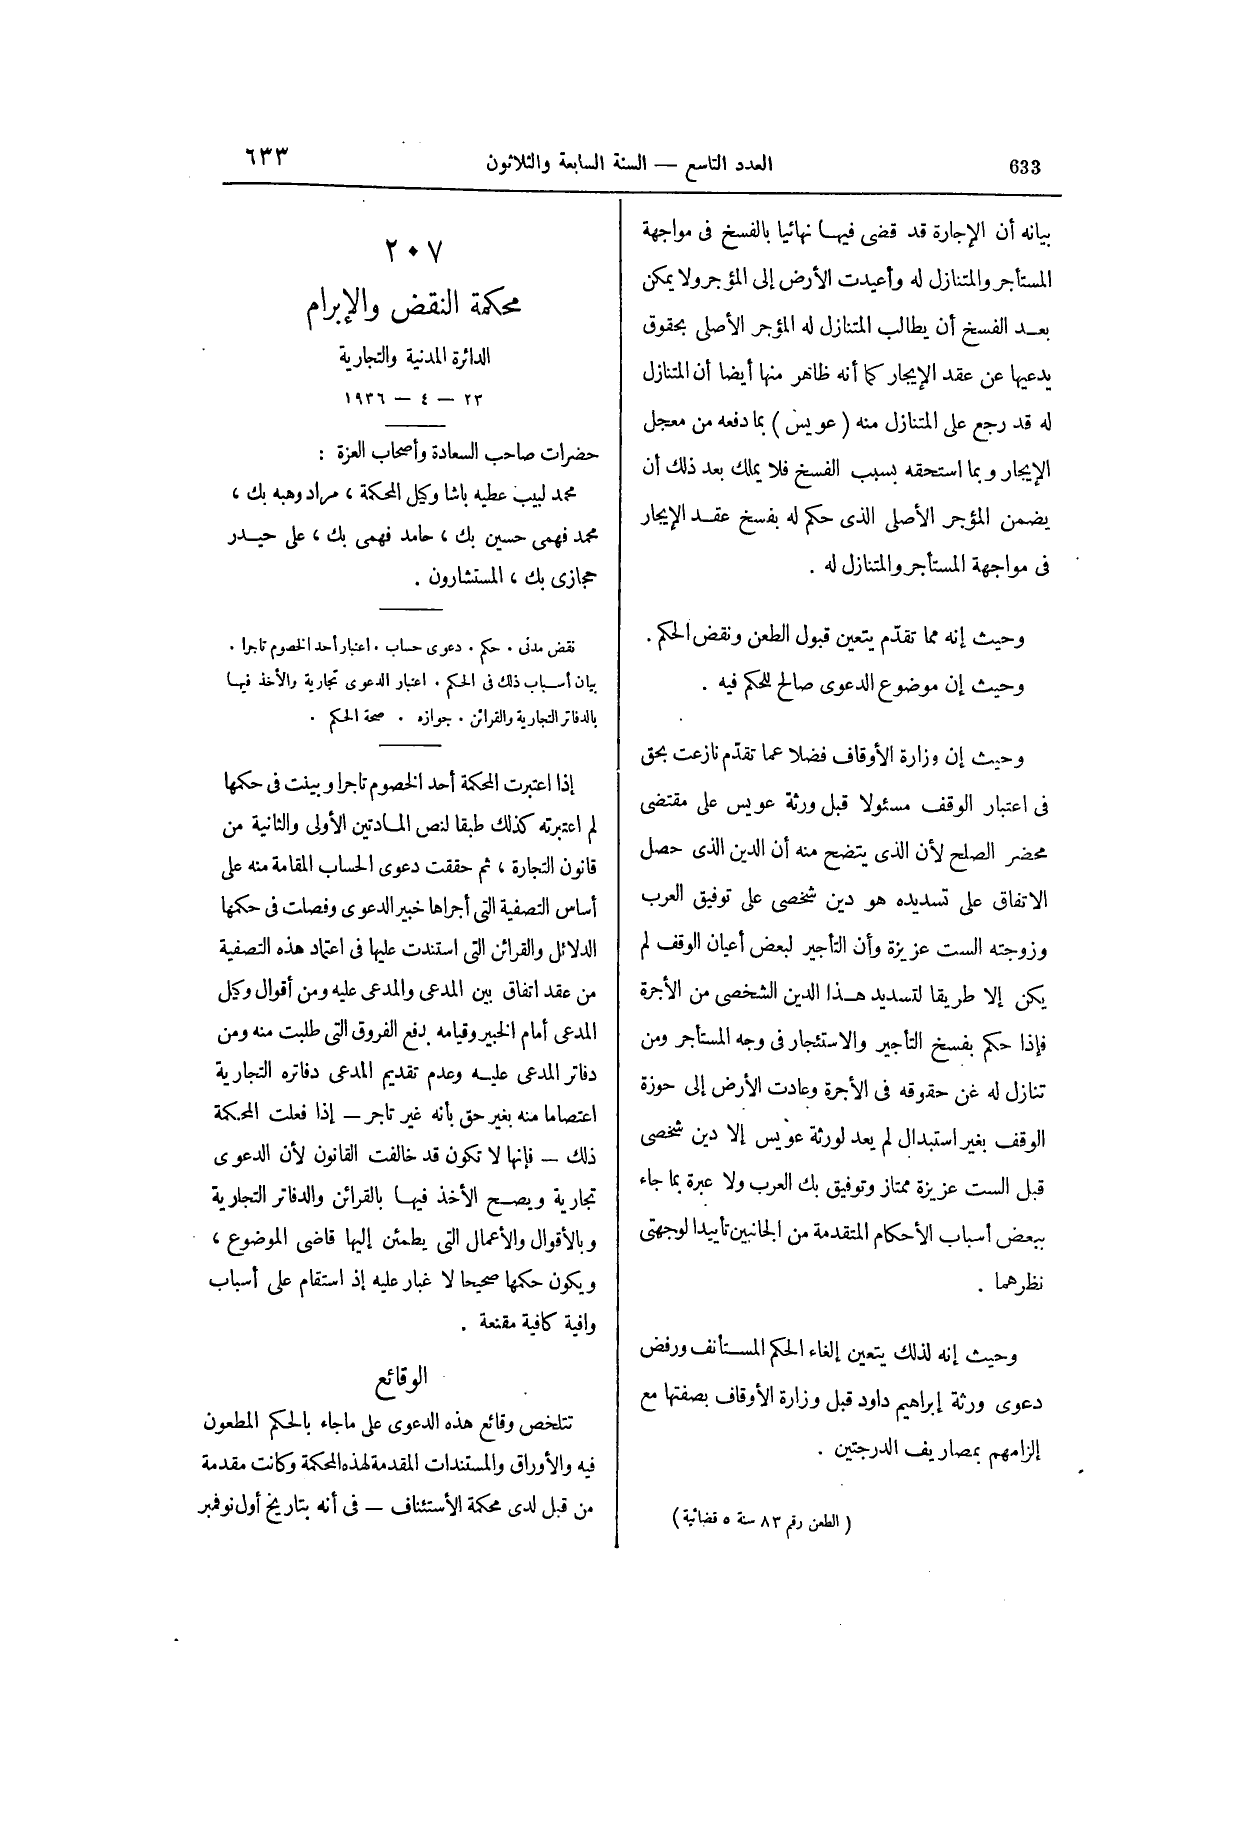 633
العدد التاسع — السنة السابعة والثلاثون
٦٣٣
بيانه أن الإجارة قد قضى فيهـا نهائيا بالفسخ فى مواجهة
المستأجر والمتنازل له وأعيدت الأرض إلى المؤجر ولا يمكن
بعـد الفسخ أن يطالب المتنازل له المؤجر الأصلى بحقوق
يدعيها عن عقد الإيجار كما أنه ظاهر منها أيضا أن المتنازل
له قد رجع على المتنازل منه ( عويس ) بما دفعه من معجل
الإيجار وبما استحقه بسبب الفسخ فلا يملك بعد ذلك أن
يضمن المؤجر الأصلى الذى حكم له بفسخ عقـد الإيجار
فى مواجهة المستأجر والمتنازل له .
وحيث إنه مما تقدّم يتعين قبول الطعن ونقض الحكم .
وحيث إن موضوع الدعوى صالح للحكم فيه .
وحيث إن وزارة الأوقاف فضلا عما تقدّم نازعت بحق
فى اعتبار الوقف مسئولا قبل ورثة عويس على مقتضى
محضر الصلح لأن الذى يتضح منه أن الدين الذى حصل
الاتفاق على تسديده هو دين شخصى على توفيق العرب
وزوجته الست عزيزة وأن التأجير لبعض أعيان الوقف لم
يكن إلا طريقا لتسديد هـذا الدين الشخصى من الأجرة
فإذا حكم بفسخ التأجير والاستئجار فى وجه المستأجر ومن
تنازل له عن حقوقه فى الأجرة وعادت الأرض إلى حوزة
الوقف بغير استبدال لم يعد لورثة عويس إلا دين شخصى
قبل الست عزيزة ممتاز وتوفيق بك العرب ولا عبرة بما جاء
ببعض أسباب الأحكام المتقدمة من الجانبين تأييدا لوجهتى
نظرهما .
وحيث إنه لذلك يتعين إلغاء الحكم المستأنف ورفض
دعوى ورثة إبراهيم داود قبل وزارة الأوقاف بصفتها مع
إلزامهم بمصاريف الدرجتين .
( الطعن رقم ٨٣ سنة ٥ قضائية )
٢٠٧
محكمة النقض والإبرام
الدائرة المدنية والتجارية
٢٣ — ٤ — ١٩٣٦
حضرات صاحب السعادة وأصحاب العزة :
محمد لبيب عطيه باشا وكيل المحكمة ، مراد وهبه بك ،
محمد فهمى حسين بك ، حامد فهمى بك ، على حيـدر
حجازى بك ، المستشارون .
نقض مدنى . حكم . دعوى حساب . اعتبار أحد الخصوم تاجرا .
بيان أسباب ذلك فى الحكم . اعتبار الدعوى تجارية والأخذ فيهـا
بالدفاتر التجارية والقرائن . جوازه . صحة الحكم .
إذا اعتبرت المحكمة أحد الخصوم تاجرا وبينت فى حكمها
لم اعتبرته كذلك طبقا لنص المـادتين الأولى والثانية من
قانون التجارة ، ثم حققت دعوى الحساب المقامة منه على
أساس التصفية التى أجراها خبير الدعوى وفصلت فى حكمها
الدلائل والقرائن التى استندت عليها فى اعتماد هذه التصفية
من عقد اتفاق بين المدعى والمدعى عليه ومن أقوال وكيل
المدعى أمام الخبير وقيامه بدفع الفروق التى طلبت منه ومن
دفاتر المدعى عليـه وعدم تقديم المدعى دفاتره التجارية
اعتصاما منه بغير حق بأنه غير تاجر — إذا فعلت المحكمة
ذلك — فإنها لا تكون قد خالفت القانون لأن الدعوى
تجارية ويصـح الأخذ فيهـا بالقرائن والدفاتر التجارية
وبالأقوال والأعمال التى يطمئن إليها قاضى الموضوع ،
ويكون حكمها صحيحا لا غبار عليه إذ استقام على أسباب
وافية كافية مقنعة .
الوقائع
تتلخص وقائع هذه الدعوى على ماجاء بالحكم المطعون
فيه والأوراق والمستندات المقدمة لهذه المحكمة وكانت مقدمة
من قبل لدى محكمة الأستئناف — فى أنه بتاريخ أول نوفمبر